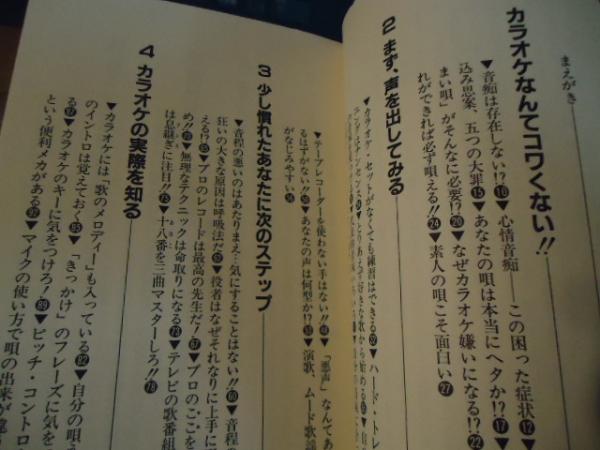 まえがき
カラオケなんてコワくない!!
▼音痴は存在しない!?⑩▼心情音痴——この困った症状⑫▼
込み思案、五つの大罪⑮▼あなたの唄は本当にヘタか!?⑰▼
まい唄"がそんなに必要!?⑳▼なぜカラオケ嫌いになる!?㉒
れができれば必ず唄える!!㉔▼素人の唄こそ面白い㉗
2 まず、声を出してみる
▼カラオケ・セットがなくても練習はできる㉜▼ハード・トレ
ーニングはナンセンス
▼とりあえず好きな歌から始める
▼テープレコーダーを使わない手はない!!㊽▼「悪声」なんてあ
るはずがない!!㊿▼あなたの声は何型か!?▼演歌、ムード歌謡
がなじみやすい
3 少し慣れたあなたに次のステップ
▼音程の悪いのはあたりまえ…気にすることはない!!60▼音程
狂いの大きな原因は呼吸法だ62▼役者はなぜそれなりに上手に
える!?65▼プロのレコードは最高の先生だ!67▼プロのここを
め!!70▼無理なテクニックは命取りになる73▼テレビの歌番組
は息継ぎに注目!!75▼十八番を三曲マスターしろ!!78
4 カラオケの実際を知る
▼カラオケには「歌のメロディー」も入っている82▼自分の唄
のイントロは覚えておく85▼「きっかけ」のフレーズに気を
る87▼カラオケのキーに気をつけろ!89▼ピッチ・コントロ
という便利メカがある92▼マイクの使い方で唄の出来が違